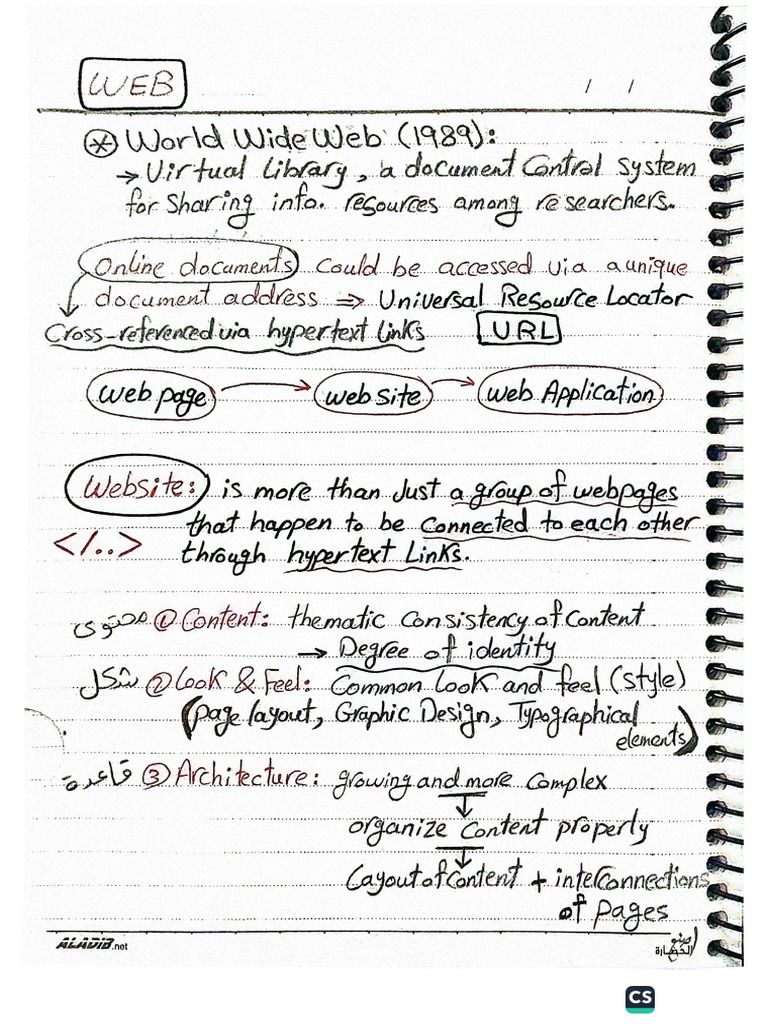 WEB
/ /
* World Wide Web (1989):
→ Virtual Library, a document Control System
for Sharing info. resources among researchers.
Online documents Could be accessed via a unique
document address ⇒ Universal Resource Locator
Cross-referenced via hypertext Links URL
web page → web site → web Application
Website: is more than Just a group of webpages
that happen to be Connected to each other
</..> through hypertext Links.
محتوى ① Content: thematic Consistency of Content
→ Degree of identity
شكل ② Look & Feel: Common Look and feel (style)
(page layout, Graphic Design, Typographical
elements)
قاعدة ③ Architecture: growing and more Complex
↓
organize Content properly
↓
Layout of Content + interconnections
of pages
ALADIB.net
CS